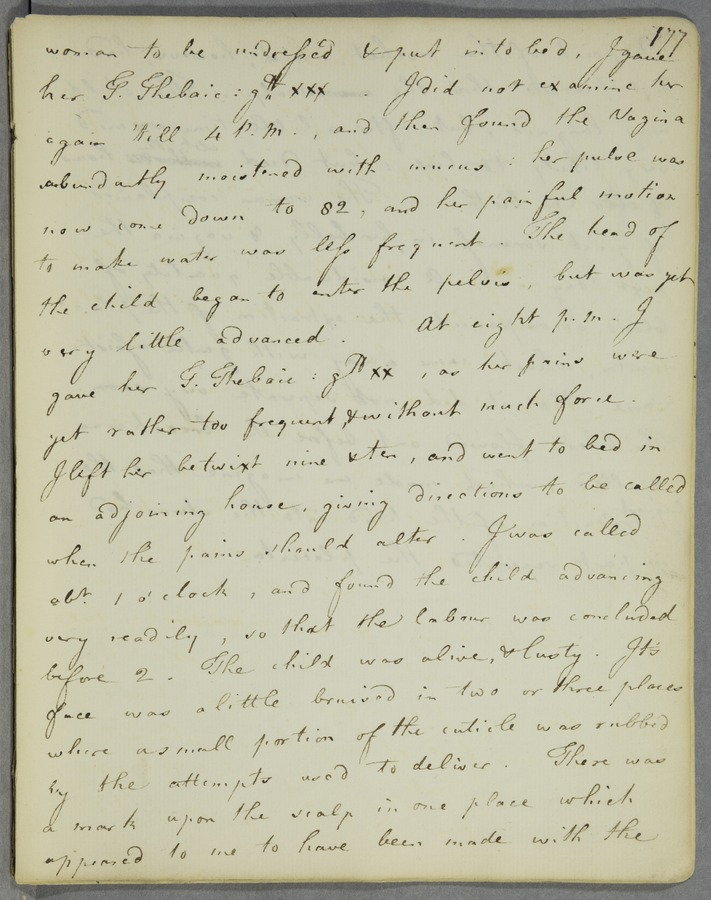 177
woman to be undressed & put into bed. I gave
her G. Thebaic: gtt xxx. I did not examine her
again 'till 4 P.M., and then found the Vagina
abundantly moistened with mucus: her pulse was
now come down to 82, and her painful motion
to make water was less frequent. The head of
the child began to enter the pelvis, but was yet
very little advanced. At eight p.m. I
gave her G. Thebaic: gtt xx, as her pains were
yet rather too frequent, & without much force.
I left her betwixt nine & ten, and went to bed in
an adjoining house, giving directions to be called
when the pains should alter. I was called
abt. 1 o'clock, and found the child advancing
very readily, so that the labour was concluded
before 2. The child was alive, & lusty. It's
face was a little bruised in two or three places
where a small portion of the cuticle was rubbed
by the attempts used to deliver. There was
a mark upon the scalp in one place which
appeared to me to have been made with the